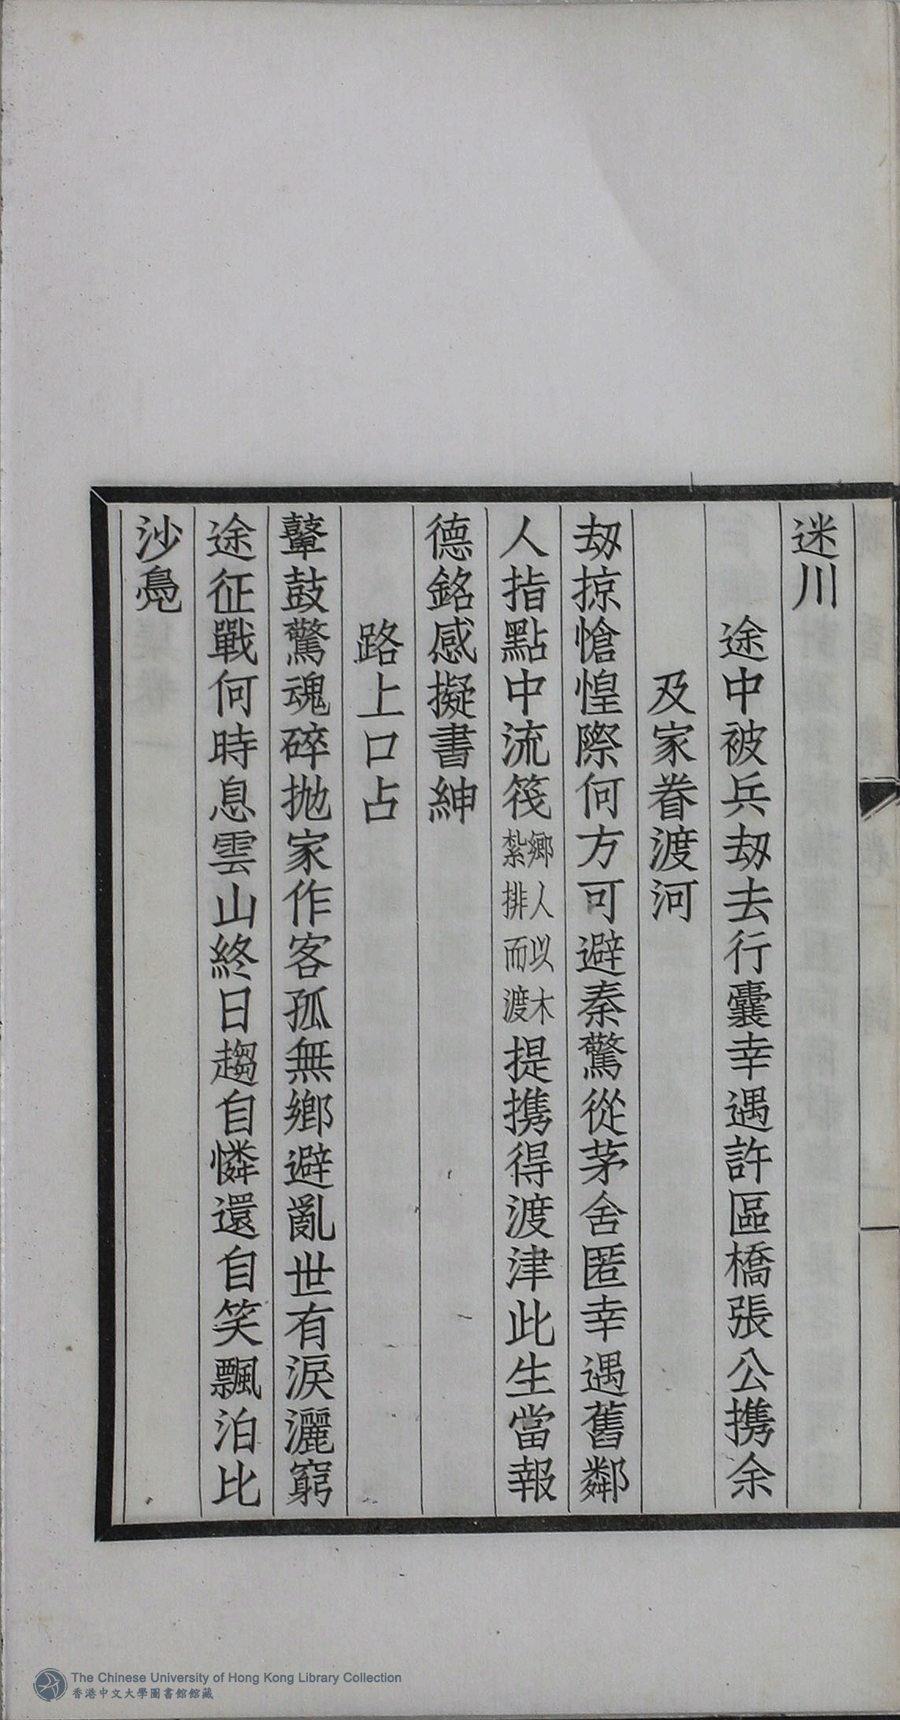 迷川
途中被兵刼去行囊幸遇許區橋張公携余
及家眷渡河
刼掠愴惶際何方可避秦驚從茅舍匿幸遇舊鄰
人指點中流筏鄉人以木紮排而渡提携得渡津此生當報
德銘感擬書紳
路上口占
鼙鼓驚魂碎拋家作客孤無鄉避亂世有淚灑窮
途征戰何時息雲山終日趨自憐還自笑飄泊比
沙鳧
The Chinese University of Hong Kong Library Collection
香港中文大學圖書館館藏